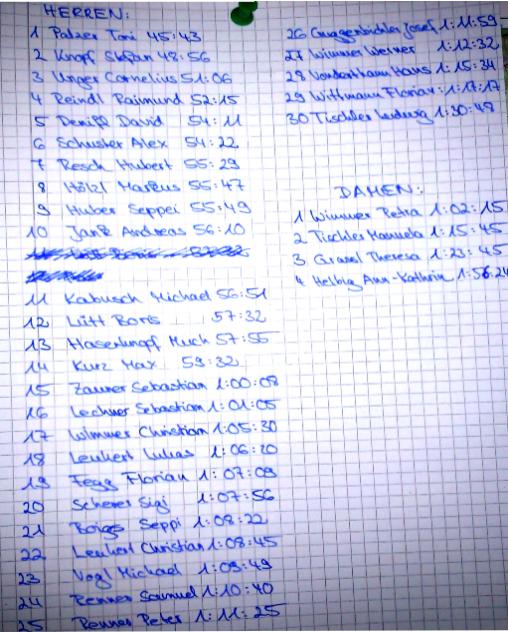 HERREN:
1 Palzer Toni 45:43
2 Knopf Stefan 48:56
3 Unger Cornelius 51:06
4 Reindl Raimund 52:15
5 David 54:11
6 Schuster Alex 54:22
7 Resch Hubert 55:29
8 Hölzl Markus 55:47
9 Huber Seppei 55:49
10 Andreas 56:10
11 Kabusch Michael 56:51
12 Lütt Boris 57:32
13 Hasenknopf Much 57:55
14 Kurz Max 59:32
15 Zauner Sebastian 1:00:08
16 Lechner Sebastian 1:01:05
17 Wimmer Christian 1:05:30
18 Leukert Lukas 1:06:20
19 Fegg Florian 1:07:09
20 Scherer Sigi 1:07:56
21 Seppi 1:08:22
22 Leukert Christian 1:08:45
23 Vogl Michael 1:09:49
24 Renner Samuel 1:10:40
25 Renner Peter 1:11:25
26 Guggenbichler Josef 1:11:59
27 Wimmer Werner 1:12:32
28 Hans 1:15:34
29 Wittmann Florian 1:17:17
30 Tischler Ludwig 1:30:48
DAMEN:
1 Wimmer Petra 1:02:15
2 Tischler Manuela 1:15:45
3 Theresa 1:23:45
4 Helbig Ann-Kathrin 1:56:24